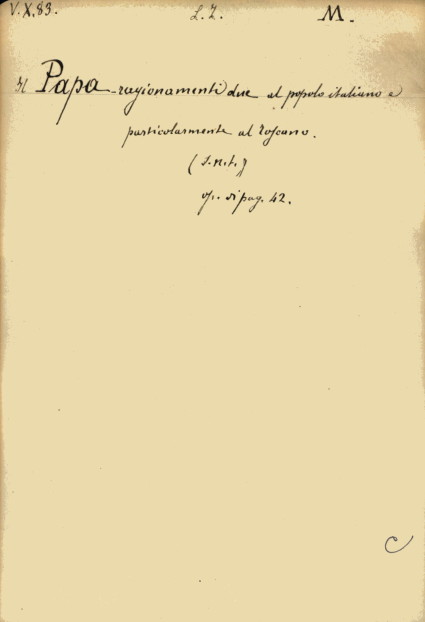 V. X. 83. L. Z. M.
Il Papa - ragionamenti due al popolo italiano e
particolarmente al Toscano.
(S. n. t.)
op. di pag. 42.
C